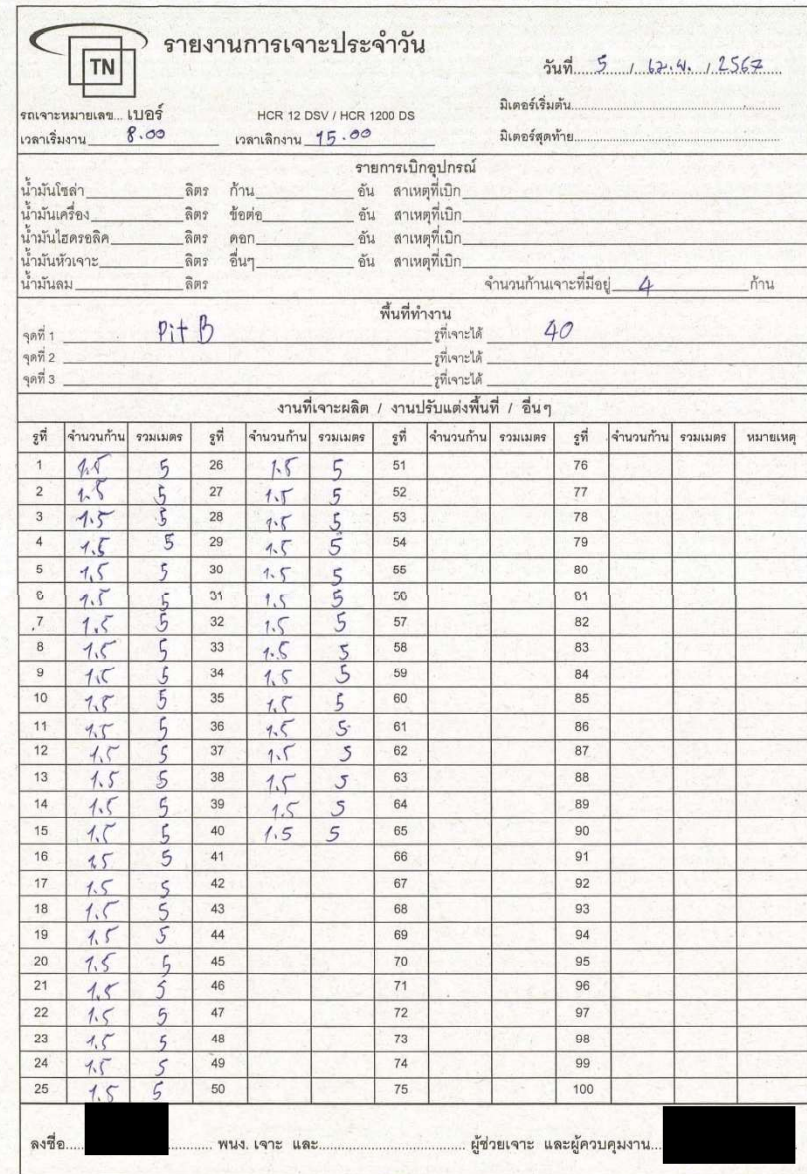 TN
รายงานการเจาะประจำวัน
วันที่ 5 / เม.ย. / 2567
รถเจาะหมายเลข... เบอร์ HCR 12 DSV / HCR 1200 DS มิเตอร์เริ่มต้น
เวลาเริ่มงาน 8.00 เวลาเลิกงาน 15.00 มิเตอร์สุดท้าย
รายการเบิกอุปกรณ์
น้ำมันโซล่า ลิตร ก้าน อัน สาเหตุที่เบิก
น้ำมันเครื่อง ลิตร ข้อต่อ อัน สาเหตุที่เบิก
น้ำมันไฮดรอลิค ลิตร ดอก อัน สาเหตุที่เบิก
น้ำมันหัวเจาะ ลิตร อื่นๆ อัน สาเหตุที่เบิก
น้ำมันลม ลิตร จำนวนก้านเจาะที่มีอยู่ 4 ก้าน
พื้นที่ทำงาน
จุดที่ 1 Pit B รูที่เจาะได้ 40
จุดที่ 2 รูที่เจาะได้
จุดที่ 3 รูที่เจาะได้
งานที่เจาะผลิต / งานปรับแต่งพื้นที่ / อื่นๆ
รูที่ จำนวนก้าน รวมเมตร รูที่ จำนวนก้าน รวมเมตร รูที่ จำนวนก้าน รวมเมตร รูที่ จำนวนก้าน รวมเมตร หมายเหตุ
1 1.5 5 26 1.5 5 51 76
2 1.5 5 27 1.5 5 52 77
3 1.5 5 28 1.5 5 53 78
4 1.5 5 29 1.5 5 54 79
5 1.5 5 30 1.5 5 55 80
6 1.5 5 31 1.5 5 56 81
7 1.5 5 32 1.5 5 57 82
8 1.5 5 33 1.5 5 58 83
9 1.5 5 34 1.5 5 59 84
10 1.5 5 35 1.5 5 60 85
11 1.5 5 36 1.5 5 61 86
12 1.5 5 37 1.5 5 62 87
13 1.5 5 38 1.5 5 63 88
14 1.5 5 39 1.5 5 64 89
15 1.5 5 40 1.5 5 65 90
16 1.5 5 41 66 91
17 1.5 5 42 67 92
18 1.5 5 43 68 93
19 1.5 5 44 69 94
20 1.5 5 45 70 95
21 1.5 5 46 71 96
22 1.5 5 47 72 97
23 1.5 5 48 73 98
24 1.5 5 49 74 99
25 1.5 5 50 75 100
ลงชื่อ พนง. เจาะ และ ผู้ช่วยเจาะ และผู้ควบคุมงาน